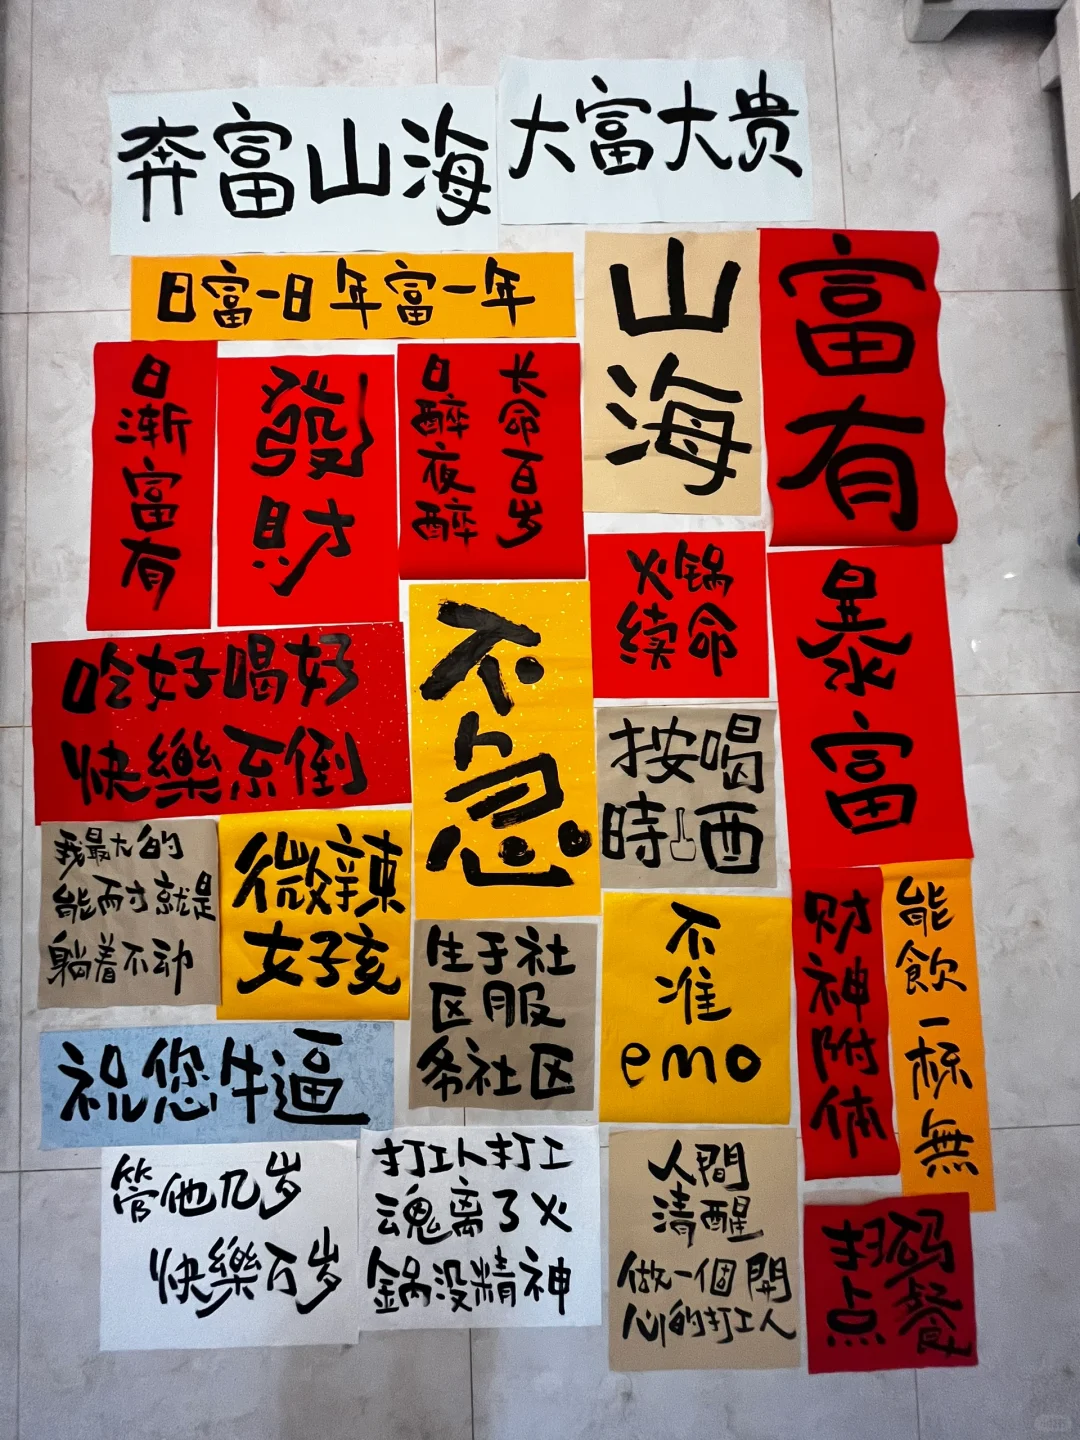 奔富山海
大富大贵
日富一日年富一年
山海
富有
日渐富有
發財
长命百岁
日醉夜醉
火锅
续命
暴富
吃好喝好
快樂不倒
不急
按喝
時酒
我最大的
能耐就是
躺着不动
微辣
女孩
生于社
区服
务社区
不
准
emo
财神附体
能飲一杯無
祝您牛逼
管他几岁
快樂万岁
打工人打工
魂离了火
鍋没精神
人間
清醒
做一個開
心的打工人
扫码
点餐